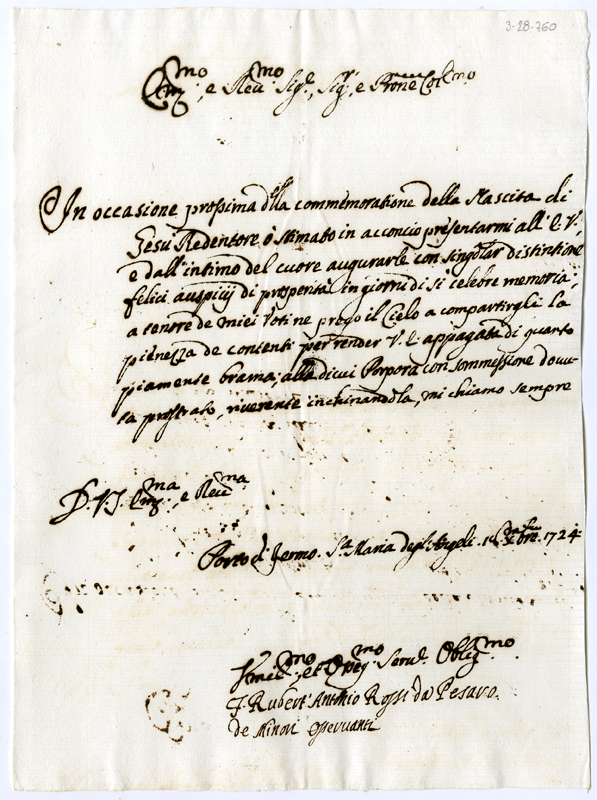 3-28-760
Em.mo, e Reu.mo Sig.e, Sig.r, e Prone Col.mo
In occasione prossima della commemoratione della Nascita di
Gesù Redentore ò stimato in acconcio presentarmi all' E. V.
e dall' intimo del cuore augurarle con singolar distintione
felici auspicij di prosperità in giorni di sì celebre memoria;
a tenore de miei voti ne prego il Cielo a compartirgli la
pienezza de contenti per render V. E. appagata di quanto
piamente brama; alla di cui Porpora con sommissione dovu-
ta prostrato, riverente inchinandola, mi chiamo sempre
D. V. S. Em.ma, e Reu.ma
Porto di Fermo. S.ta Maria degl'Angeli. Xbre. 1724
et Serv.e Oblig.mo
F. Rubert' Antonio Rossi da Pesaro.
de Minori Osservanti